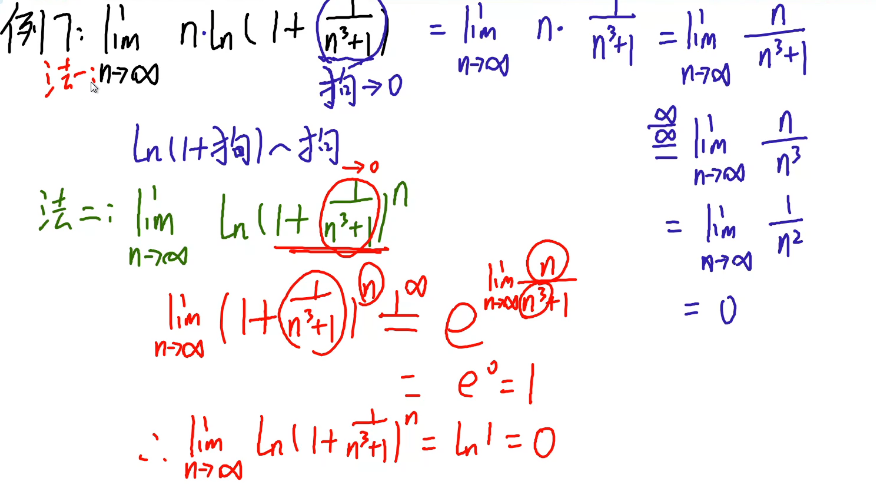 例7: lim n→∞ n·ln(1+ 1/(n³+1)) = lim n→∞ n· 1/(n³+1) = lim n→∞ n/(n³+1)
法一:
狗→0
∞/∞ = lim n→∞ n/n³
ln(1+狗)~狗
= lim n→∞ 1/n²
= 0
→0
法二: lim n→∞ ln(1+ 1/(n³+1))ⁿ
lim n→∞ (1+ 1/(n³+1))ⁿ 1^∞ = e^(lim n→∞ n/(n³+1))
= e⁰=1
∴ lim n→∞ ln(1+ 1/(n³+1))ⁿ = ln1 = 0